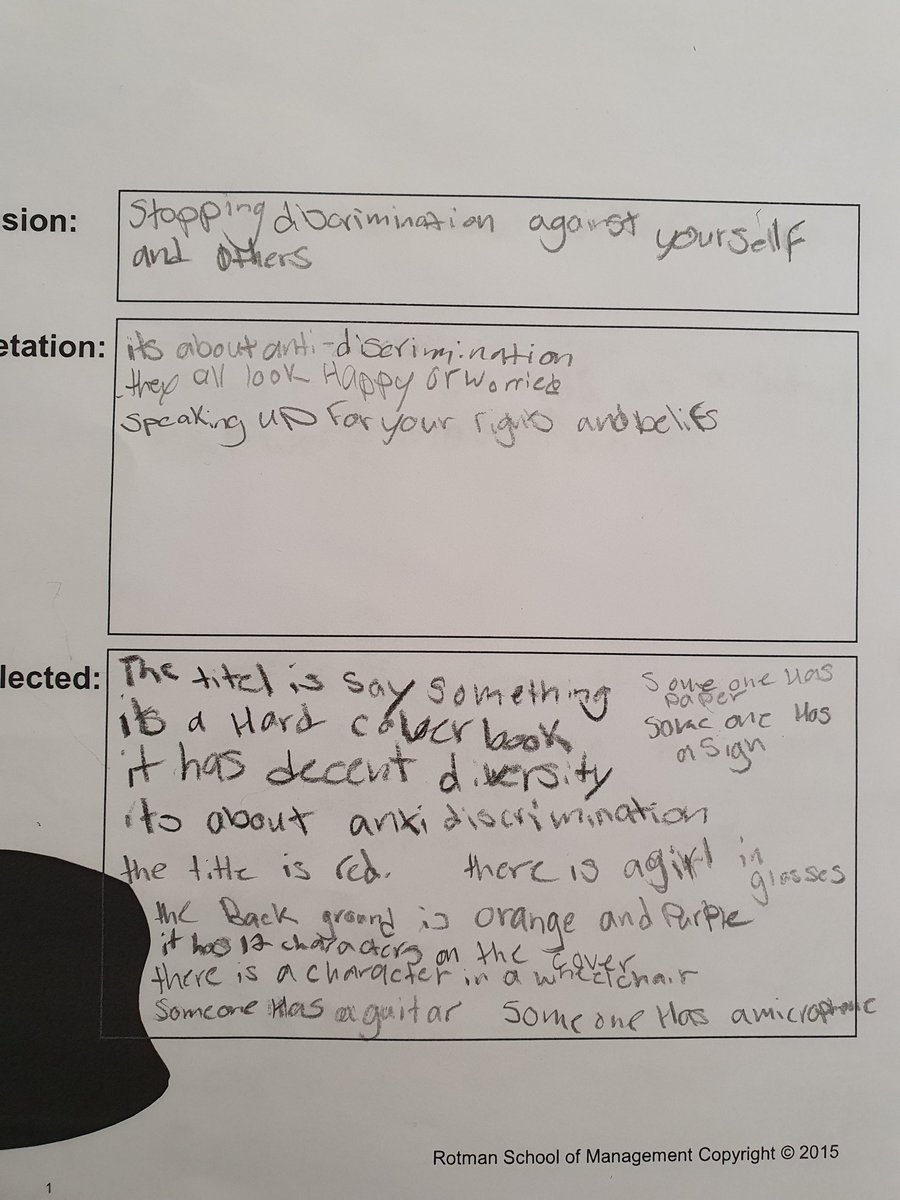 sion:
Stopping discrimination against yourself
and others
etation:
its about anti-discrimination
they all look Happy or worried
speaking up for your rights and belifs
lected:
The titel is say something
it's a Hard cover book
it has decent diversity
its about anxi discrimination
the title is red. there is a girl in glasses
the Back ground is orange and Purple
it has 12 characters on the cover
there is a character in a wheelchair
Someone Has a guitar Some one Has a microphone
Some one Has
paper
Some one Has
a sign
Rotman School of Management Copyright © 2015
1